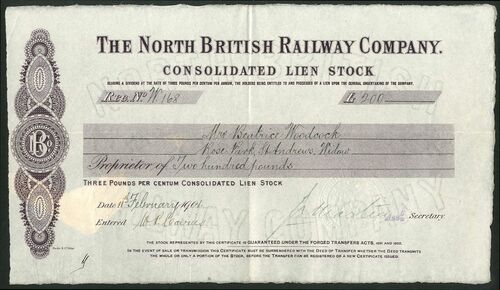 THE NORTH BRITISH RAILWAY COMPANY.
CONSOLIDATED LIEN STOCK
BEARING A DIVIDEND AT THE RATE OF THREE POUNDS PER CENTUM PER ANNUM, THE HOLDERS BEING ENTITLED TO AND POSSESSED OF A LIEN UPON THE GENERAL UNDERTAKING OF THE COMPANY.
Reg. No W 168 £ 200
Mrs Beatrice Woodcock
Rose Park, St Andrews, Widow
Proprietor of Two hundred pounds
THREE POUNDS PER CENTUM CONSOLIDATED LIEN STOCK
Date February
Entered Secretary.
THE STOCK REPRESENTED BY THIS CERTIFICATE IS GUARANTEED UNDER THE FORGED TRANSFERS ACTS, 1891 AND 1892.
IN THE EVENT OF SALE OR TRANSMISSION THIS CERTIFICATE MUST BE SURRENDERED WITH THE DEED OF TRANSFER WHETHER THE DEED TRANSMITS
THE WHOLE OR ONLY A PORTION OF THE STOCK, BEFORE THE TRANSFER CAN BE REGISTERED OR A NEW CERTIFICATE ISSUED.